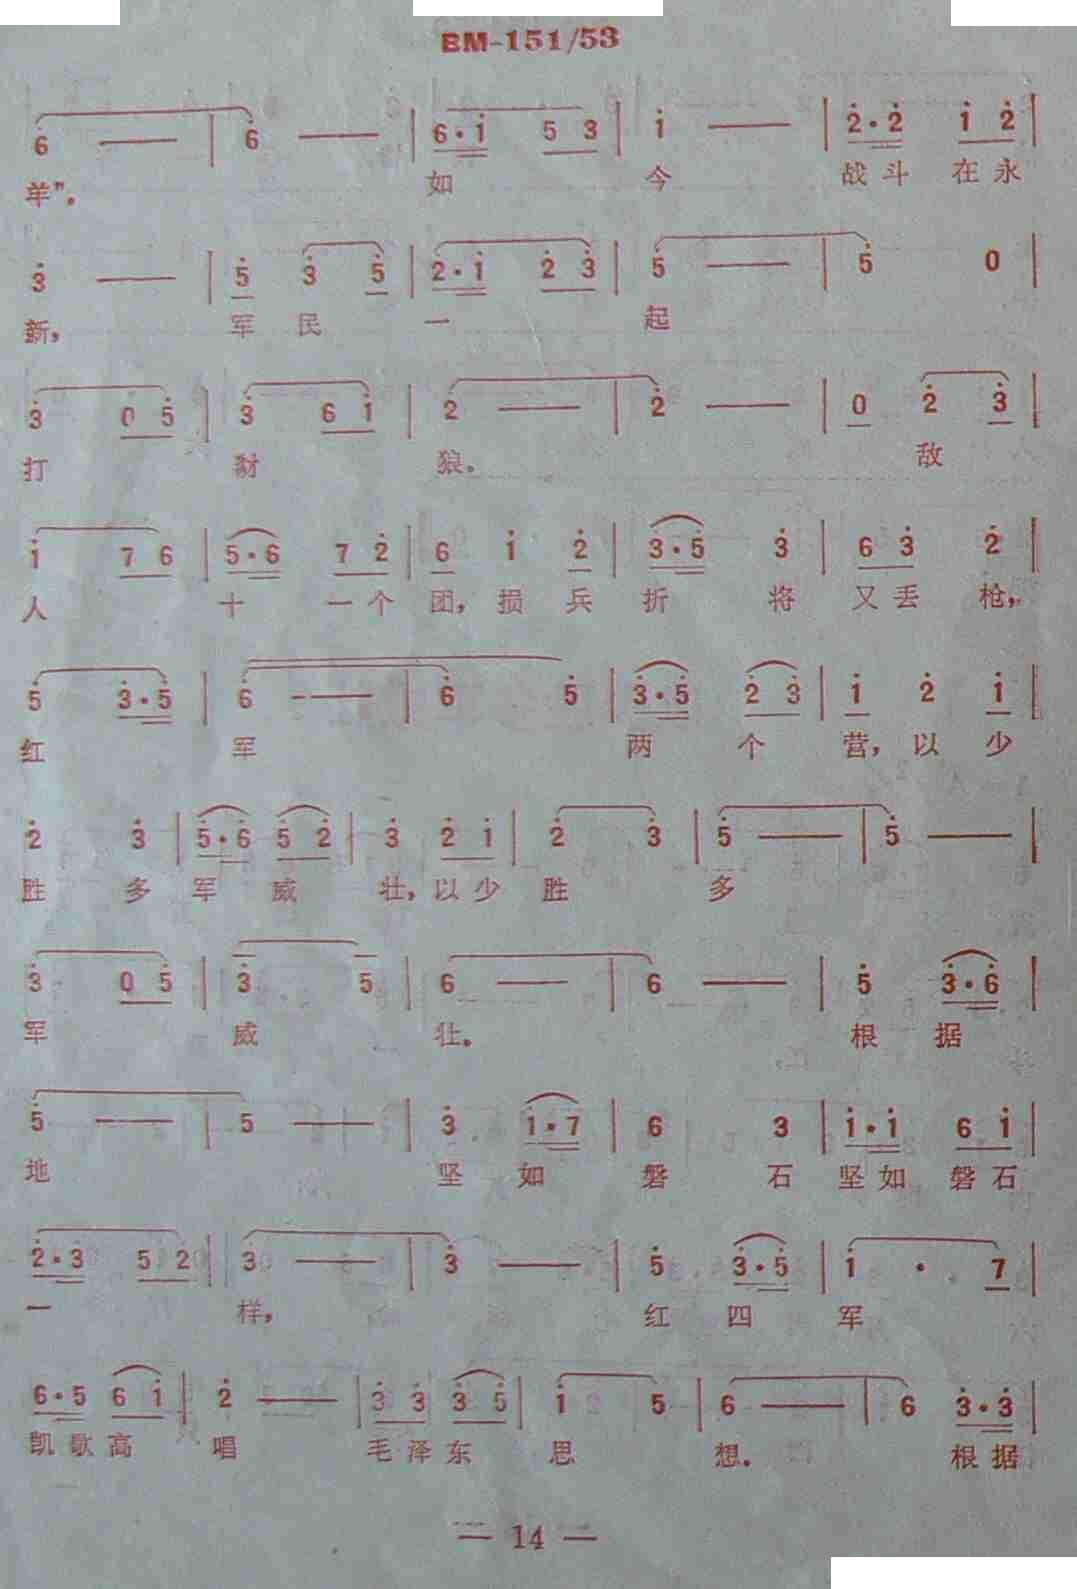 BM-151/53
6 — | 6 — | 6·i 5 3 | i — | 2·2 i 2 |
羊”。 如 今 战斗 在永
3 — | 5 3 5 | 2·i 2 3 | 5 — | 5 0 |
新， 军 民 一 起
3 0 5 | 3 6 i | 2 — | 2 — | 0 2 3 |
打 豺 狼。 敌
i 7 6 | 5·6 7 2 | 6 i 2 | 3·5 3 | 6 3 2 |
人 十 一个 团，损 兵 折 将 又丢 枪，
5 3·5 | 6 — | 6 5 | 3·5 2 3 | i 2 i |
红 军 两 个 营，以 少
2 3 | 5·6 5 2 | 3 2 i | 2 3 | 5 — | 5 — |
胜 多 军 威 壮，以少 胜 多
3 0 5 | 3 5 | 6 — | 6 — | 5 3·6 |
军 威 壮。 根 据
5 — | 5 — | 3 i·7 | 6 3 | i·i 6 i |
地 坚 如 磐 石 坚如 磐石
2·3 5 2 | 3 — | 3 — | 5 3·5 | i · 7 |
一 样， 红 四 军
6·5 6 i | 2 — | 3 3 3 5 | i 5 | 6 — | 6 3·3 |
凯歌高 唱 毛泽东 思 想。 根据
— 14 —